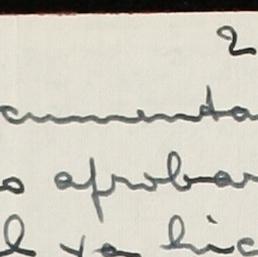 2
cumenta
o aprobar
l ya hic